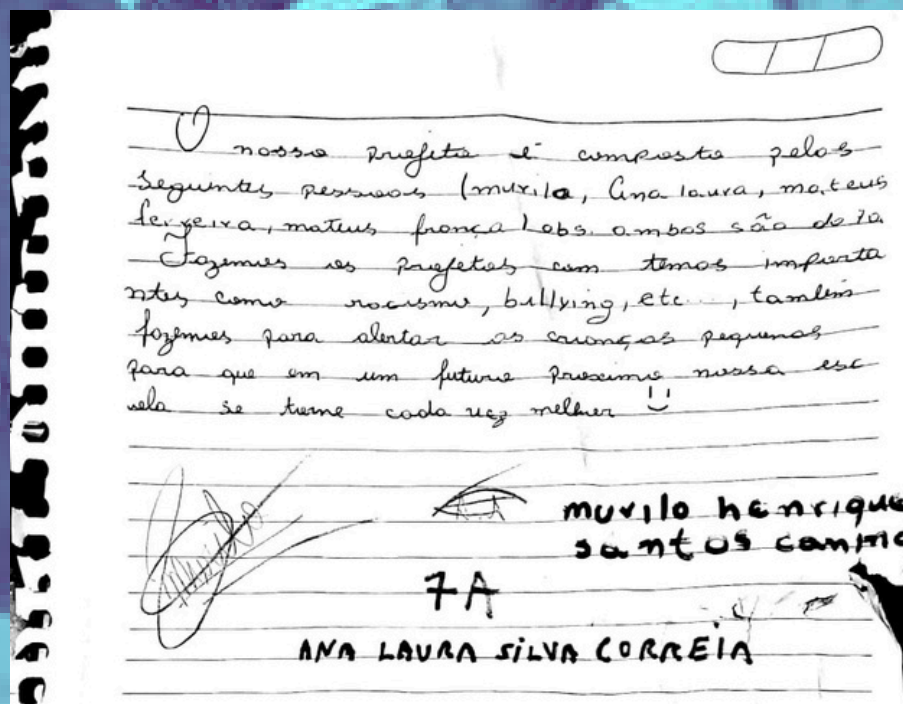 O nosso projeto é composto pelas
seguintes pessoas (murilo, Ana laura, mateus
ferreira, mateus frança) obs. ambos são do 7a
Fazemos os projetos com temas importa
ntes como racismo, bullying, etc..., também
fazemos para alertar as crianças pequenas
para que em um futuro proximo nossa esc
ola se torne cada vez melhor
murilo henrique
santos
7A
ANA LAURA SILVA CORREIA